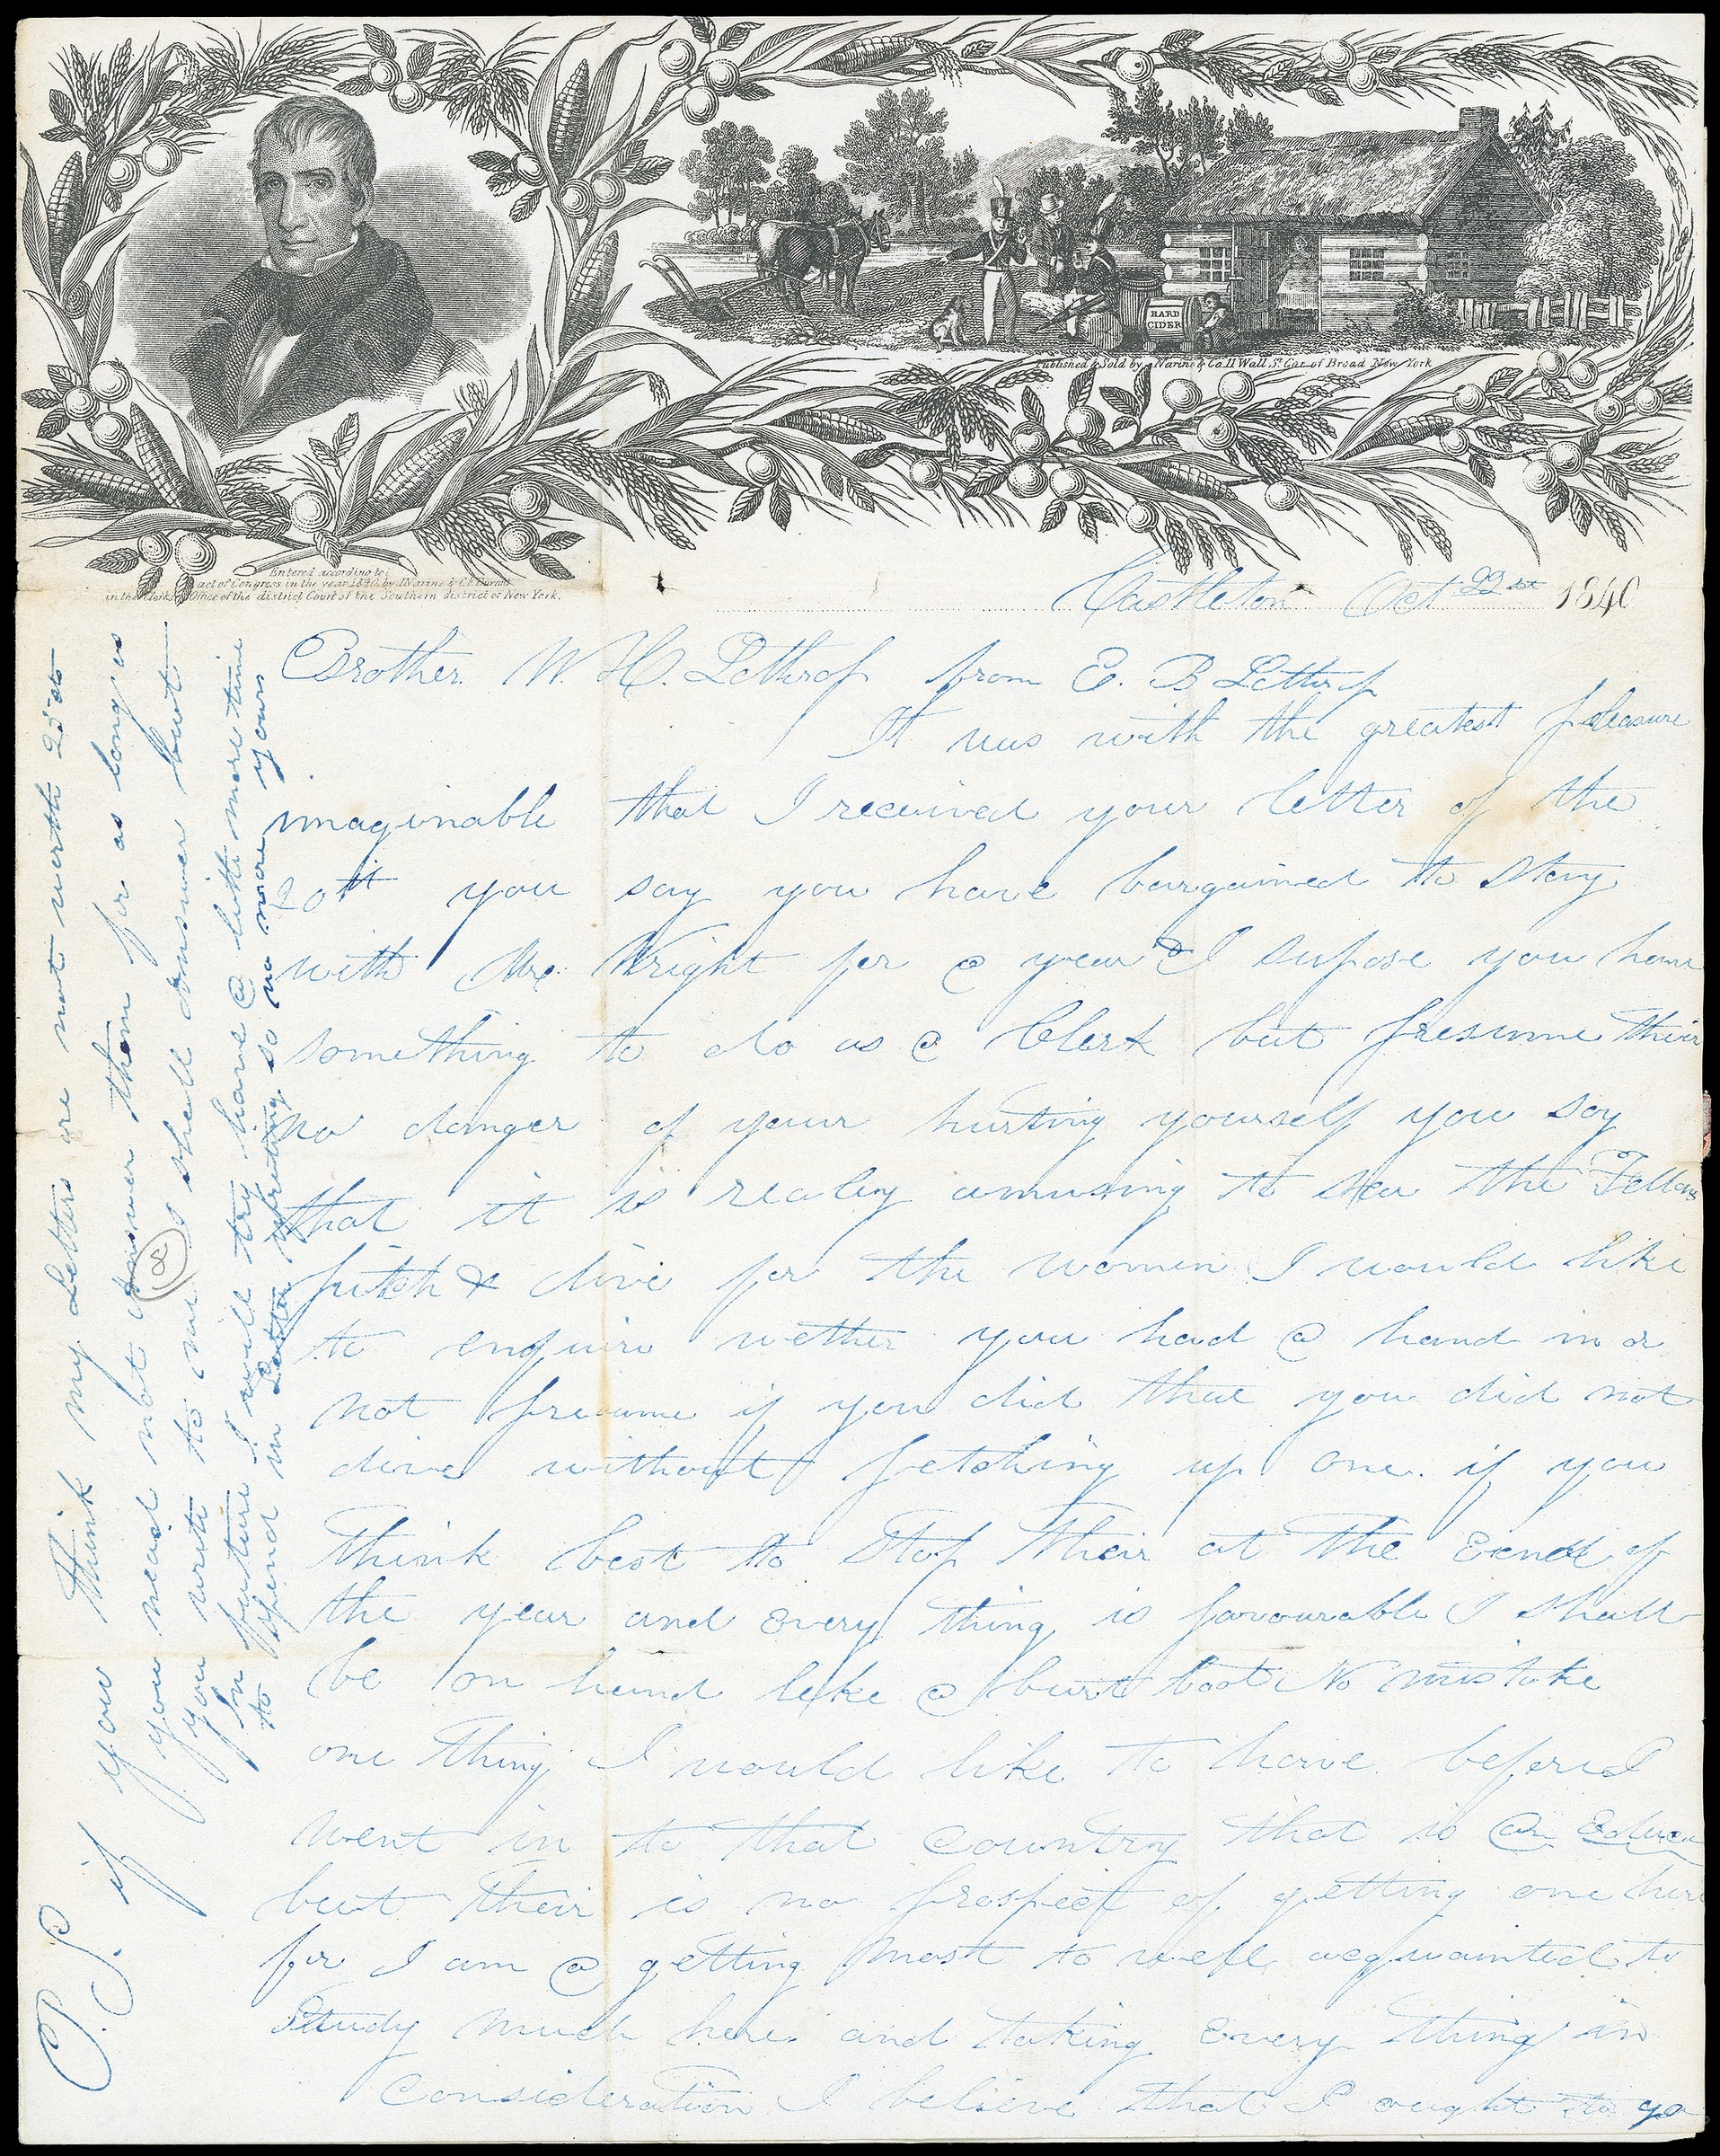 HARD
CIDER
Published & Sold by J Narine & Co. 11 Wall St. Cor. of Broad New York
Entered according to
act of Congress in the year 1840, by J Narine & Co
in the Clerks Office of the district Court of the Southern district of New York.
Castleton Oct 22st 1840
Brother W. H. Lothrop from E. B Lothrop
It was with the greatest pleasure
imaginable that I received your letter of the
20th you say you have bargained to stay
with Mr Wright for a year & I supose you have
something to do as a Clerk but presume their
no danger of your hurting yourself you say
that it is realey amusing to see the Fellows
pitch & dive for the women I would like
to enquire wether you had a hand in or
not presume if you did that you did not
dive without fetching up one. if you
think best to Stop their at the Eend of
the year and every thing is favourable I shall
be on hand like a burt boot No mistake
one thing I would like to have before I
went in to that country that is a Educa
but their is no prospect of getting one here
for I am a getting most to well acquainted to
Study much here and taking every thing in
Consideration I believe that I ought to go
P.S. if you think my Letters are not worth 25 cts
you nead not answer them for as long as
you write to me I shall answer but
In future I will try have a little more time
to spend in Letter writing so no more yours